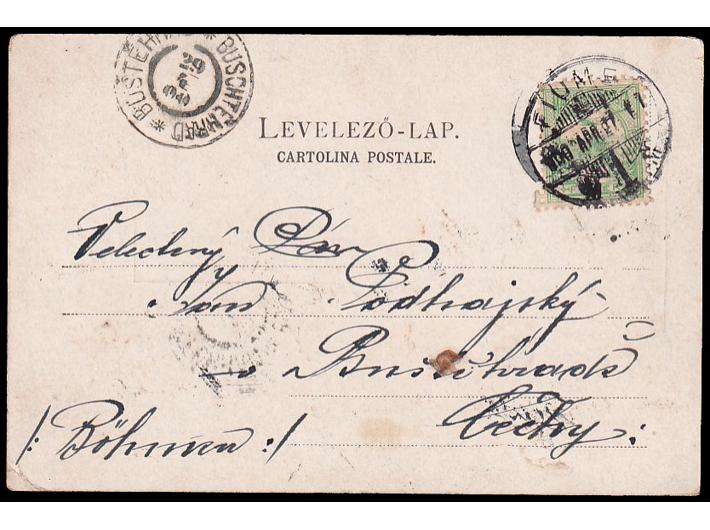 BUŠTĚHRAD * BUSCHTĚHRAD *
29
4
FIUME
LEVELEZŐ-LAP.
CARTOLINA POSTALE.
Velectěný Pán
Jan Podhajský
v Buštěhradě
Čechy.
/: Böhmen :/